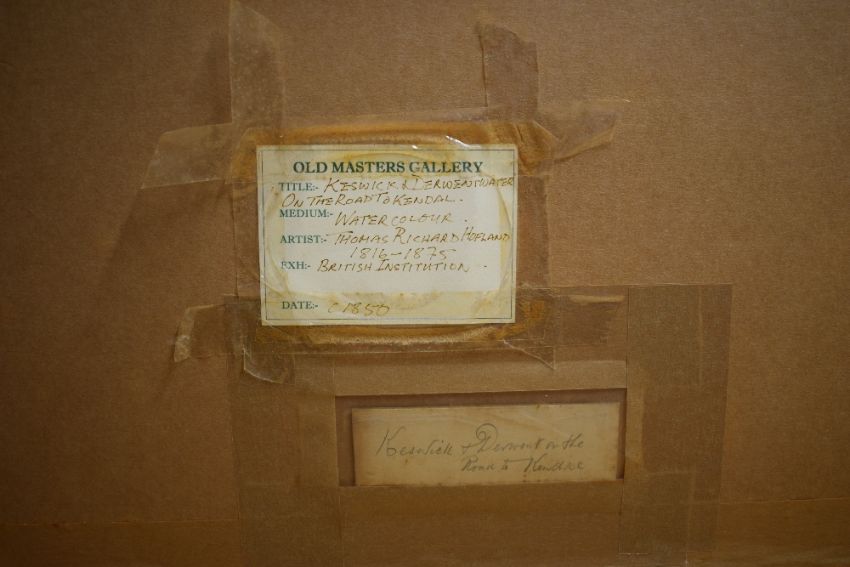 OLD MASTERS GALLERY
TITLE:- KESWICK & DERWENTWATER
ON THE ROAD TO KENDAL.
MEDIUM:- WATERCOLOUR.
ARTIST:- THOMAS RICHARD HOFLAND
1816-1875
EXH:- BRITISH INSTITUTION.
DATE:- C1850
Keswick & Derwent on the
Road to